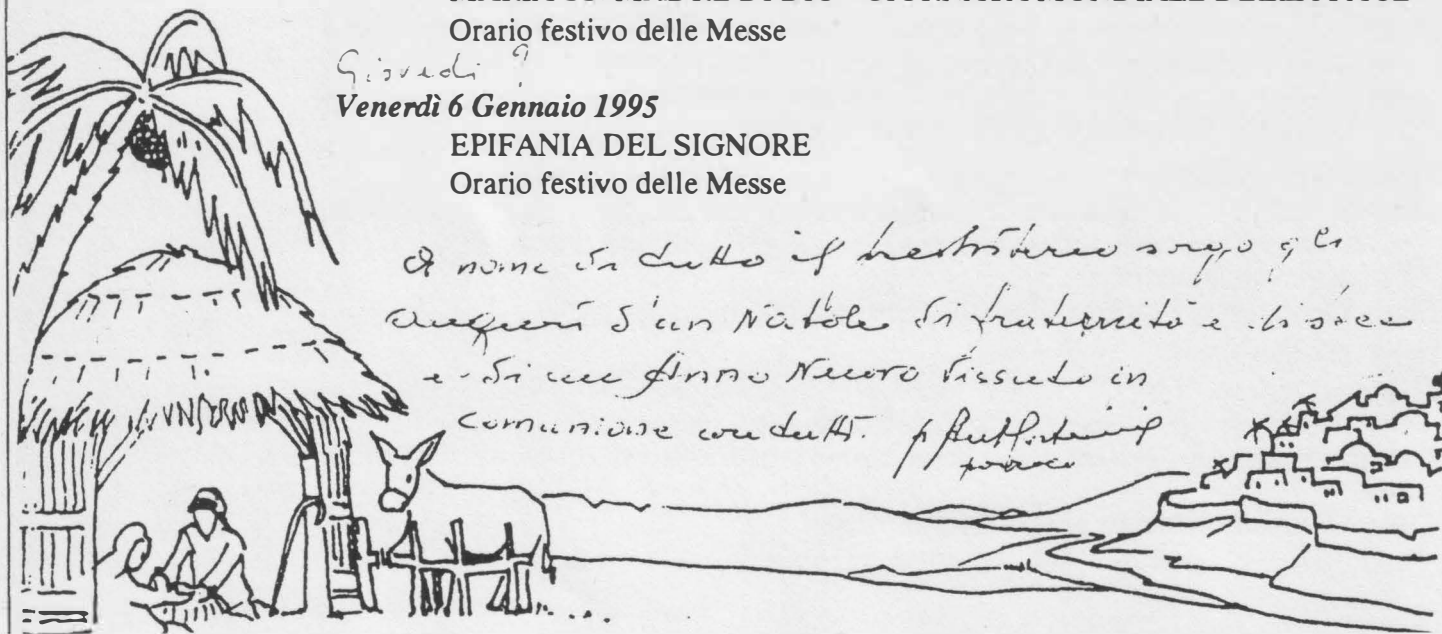 MARIA SS. MADRE DI DIO - GIORNATA MONDIALE DELLA PACE
Orario festivo delle Messe
Giovedì ?
Venerdì 6 Gennaio 1995
EPIFANIA DEL SIGNORE
Orario festivo delle Messe
A nome di tutto il presbiterio porgo gli
auguri d'un Natale di fraternità e di pace
e di un Anno Nuovo vissuto in
comunione con tutti.
parroco